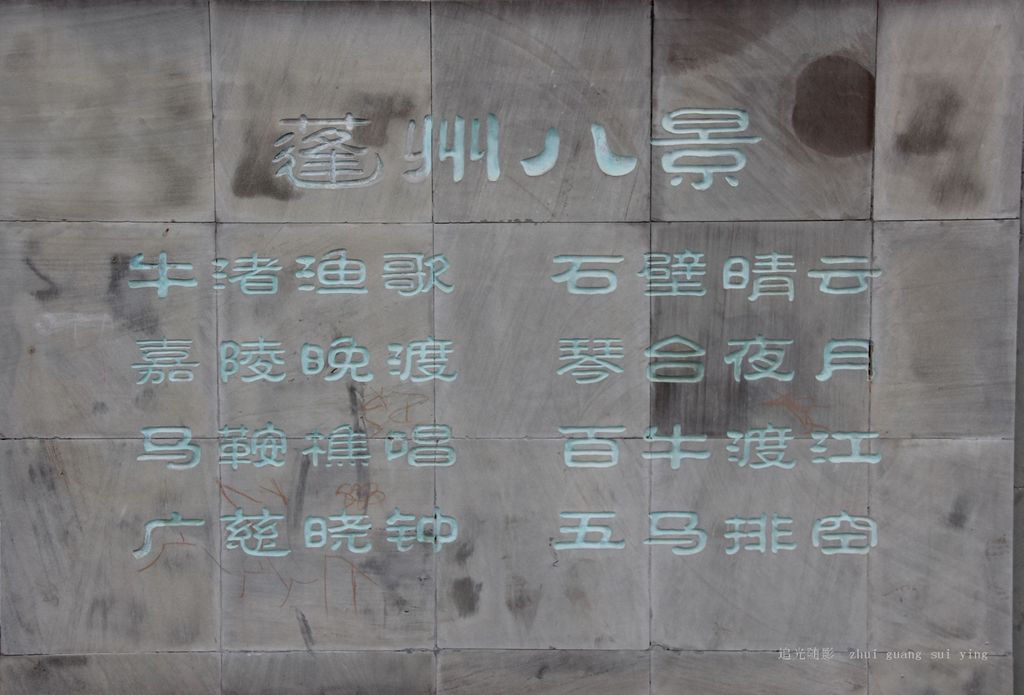 蓬州八景
牛渚渔歌 石壁晴云
嘉陵晚渡 琴台夜月
马鞍樵唱 百牛渡江
广慈晓钟 五马排空
追光随影 zhui guang sui ying